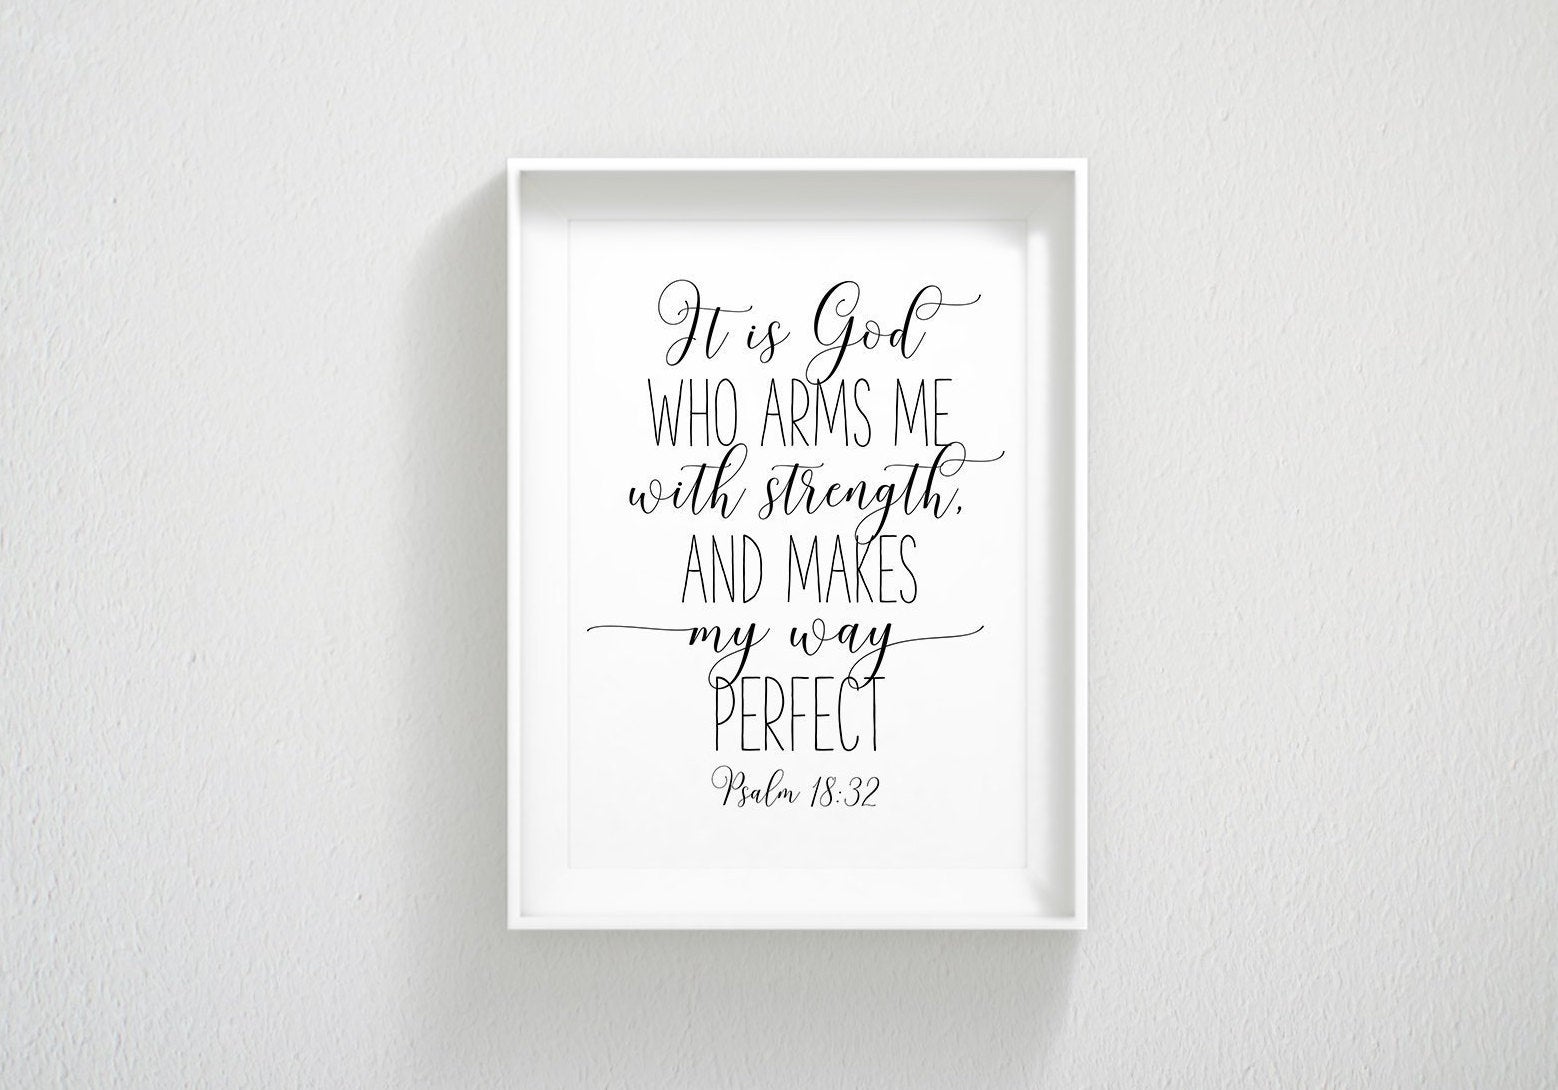 It is God
WHO ARMS ME
with strength,
AND MAKES
my way
PERFECT
Psalm 18:32